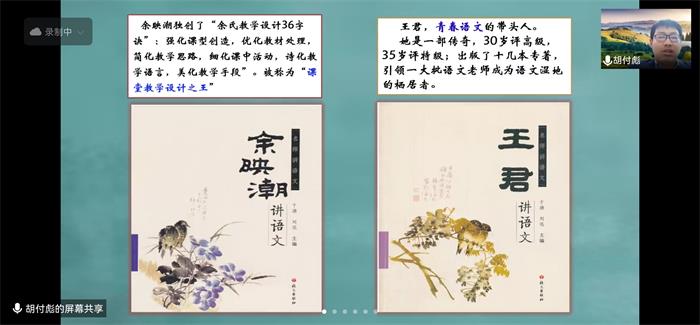 录制中
余映潮独创了“余氏教学设计36字
诀”：强化课型创造，优化教材处理，
简化教学思路，细化课中活动，诗化教
学语言，美化教学手段”。被称为“课
堂教学设计之王”
王君，青春语文的带头人。
她是一部传奇，30岁评高级，
35岁评特级；出版了十几本专著，
引领一大批语文老师成为语文湿地
的栖居者。
胡付彪
名师讲语文
余映潮
讲语文
于漪 刘远 主编
语文出版社
名师讲语文
王君
讲语文
于漪 刘远 主编
语文出版社
胡付彪的屏幕共享